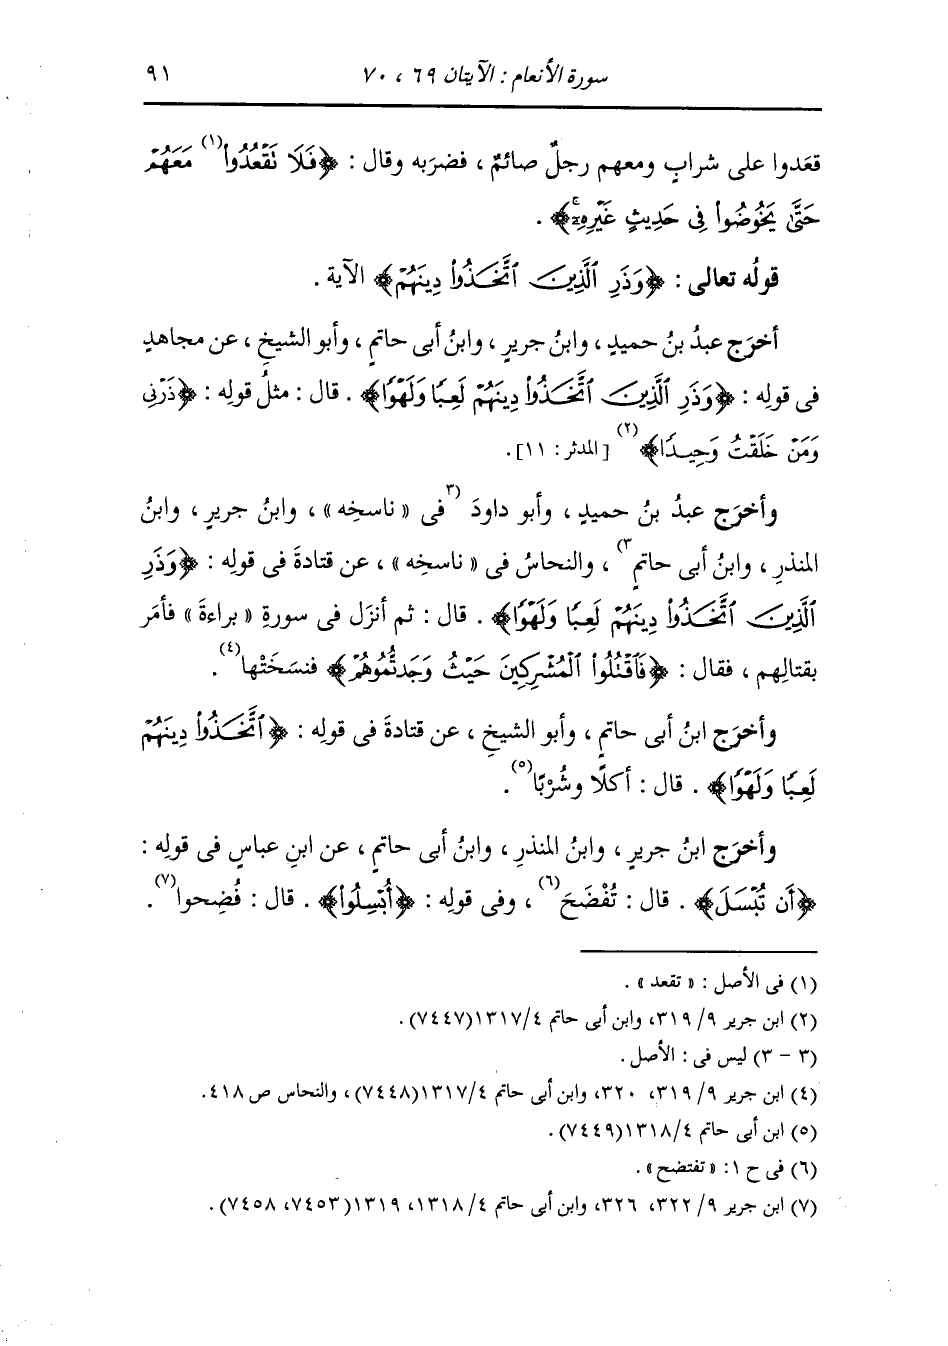 سورة الأنعام : الآيتان ٦٩ ، ٧٠ ٩١
قعَدوا على شرابٍ ومعهم رجلٌ صائمٌ ، فضرَبه وقال : ﴿فَلَا نَقْعُدُوا۟(١) مَعَهُمْ
حَتَّىٰ يَخُوضُوا۟ فِى حَدِيثٍ غَيْرِهِۦٓ﴾ .
قولُه تعالى : ﴿وَذَرِ ٱلَّذِينَ ٱتَّخَذُوا۟ دِينَهُمْ﴾ الآية .
أخرَج عبدُ بنُ حميدٍ ، وابنُ جريرٍ ، وابنُ أبى حاتمٍ ، وأبو الشيخِ ، عن مجاهدٍ
فى قولِه : ﴿وَذَرِ ٱلَّذِينَ ٱتَّخَذُوا۟ دِينَهُمْ لَعِبًا وَلَهْوًا﴾ . قال : مثلُ قولِه : ﴿ذَرْنِى
وَمَنْ خَلَقْتُ وَحِيدًا﴾(٢) [المدثر : ١١] .
وأخرَج عبدُ بنُ حميدٍ ، وأبو داودَ (٣فى « ناسخِه » ، وابنُ جريرٍ ، وابنُ
المنذرِ ، وابنُ أبى حاتمٍ ٣) ، والنحاسُ فى « ناسخِه » ، عن قتادةَ فى قولِه : ﴿وَذَرِ
ٱلَّذِينَ ٱتَّخَذُوا۟ دِينَهُمْ لَعِبًا وَلَهْوًا﴾ . قال : ثم أنزَل فى سورةِ « براءةَ » فأمَر
بقتالِهم ، فقال : ﴿فَٱقْتُلُوا۟ ٱلْمُشْرِكِينَ حَيْثُ وَجَدتُّمُوهُمْ﴾ فنسَخَتْها(٤) .
وأخرَج ابنُ أبى حاتمٍ ، وأبو الشيخِ ، عن قتادةَ فى قولِه : ﴿ٱتَّخَذُوا۟ دِينَهُمْ
لَعِبًا وَلَهْوًا﴾ . قال : أكلًا وشُرْبًا(٥) .
وأخرَج ابنُ جريرٍ ، وابنُ المنذرِ ، وابنُ أبى حاتمٍ ، عن ابنِ عباسٍ فى قولِه :
﴿أَن تُبْسَلَ﴾ . قال : تُفْضَحَ(٦) ، وفى قولِه : ﴿أُبْسِلُوا۟﴾ . قال : فُضِحوا(٧) .
(١) فى الأصل : « تقعد » .
(٢) ابن جرير ٩/ ٣١٩، وابن أبى حاتم ٤/ ١٣١٧(٧٤٤٧) .
(٣ - ٣) ليس فى : الأصل .
(٤) ابن جرير ٩/ ٣١٩، ٣٢٠، وابن أبى حاتم ٤/ ١٣١٧(٧٤٤٨) ، والنحاس ص ٤١٨.
(٥) ابن أبى حاتم ٤/ ١٣١٨(٧٤٤٩) .
(٦) فى ح ١: « تفتضح » .
(٧) ابن جرير ٩/ ٣٢٢، ٣٢٦، وابن أبى حاتم ٤/ ١٣١٨، ١٣١٩(٧٤٥٣، ٧٤٥٨) .